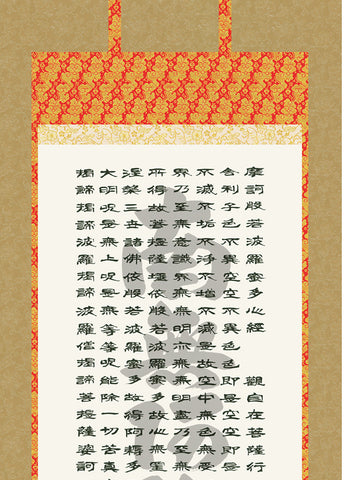 摩訶般若波羅蜜多心経 觀自在菩薩行
舎利子色不異空空不異色色即是空空即是
不滅不垢不浄不増不減是故空中無色無受
界乃至無意識界無無明亦無無明盡乃至無
所得故菩提薩埵依般若波羅蜜多故心無罣
涅槃三世諸佛依般若波羅蜜多故得阿耨多
大明呪是無上呪是無等等呪能除一切苦真
揭諦揭諦波羅揭諦波羅僧揭諦菩提薩婆訶
南無